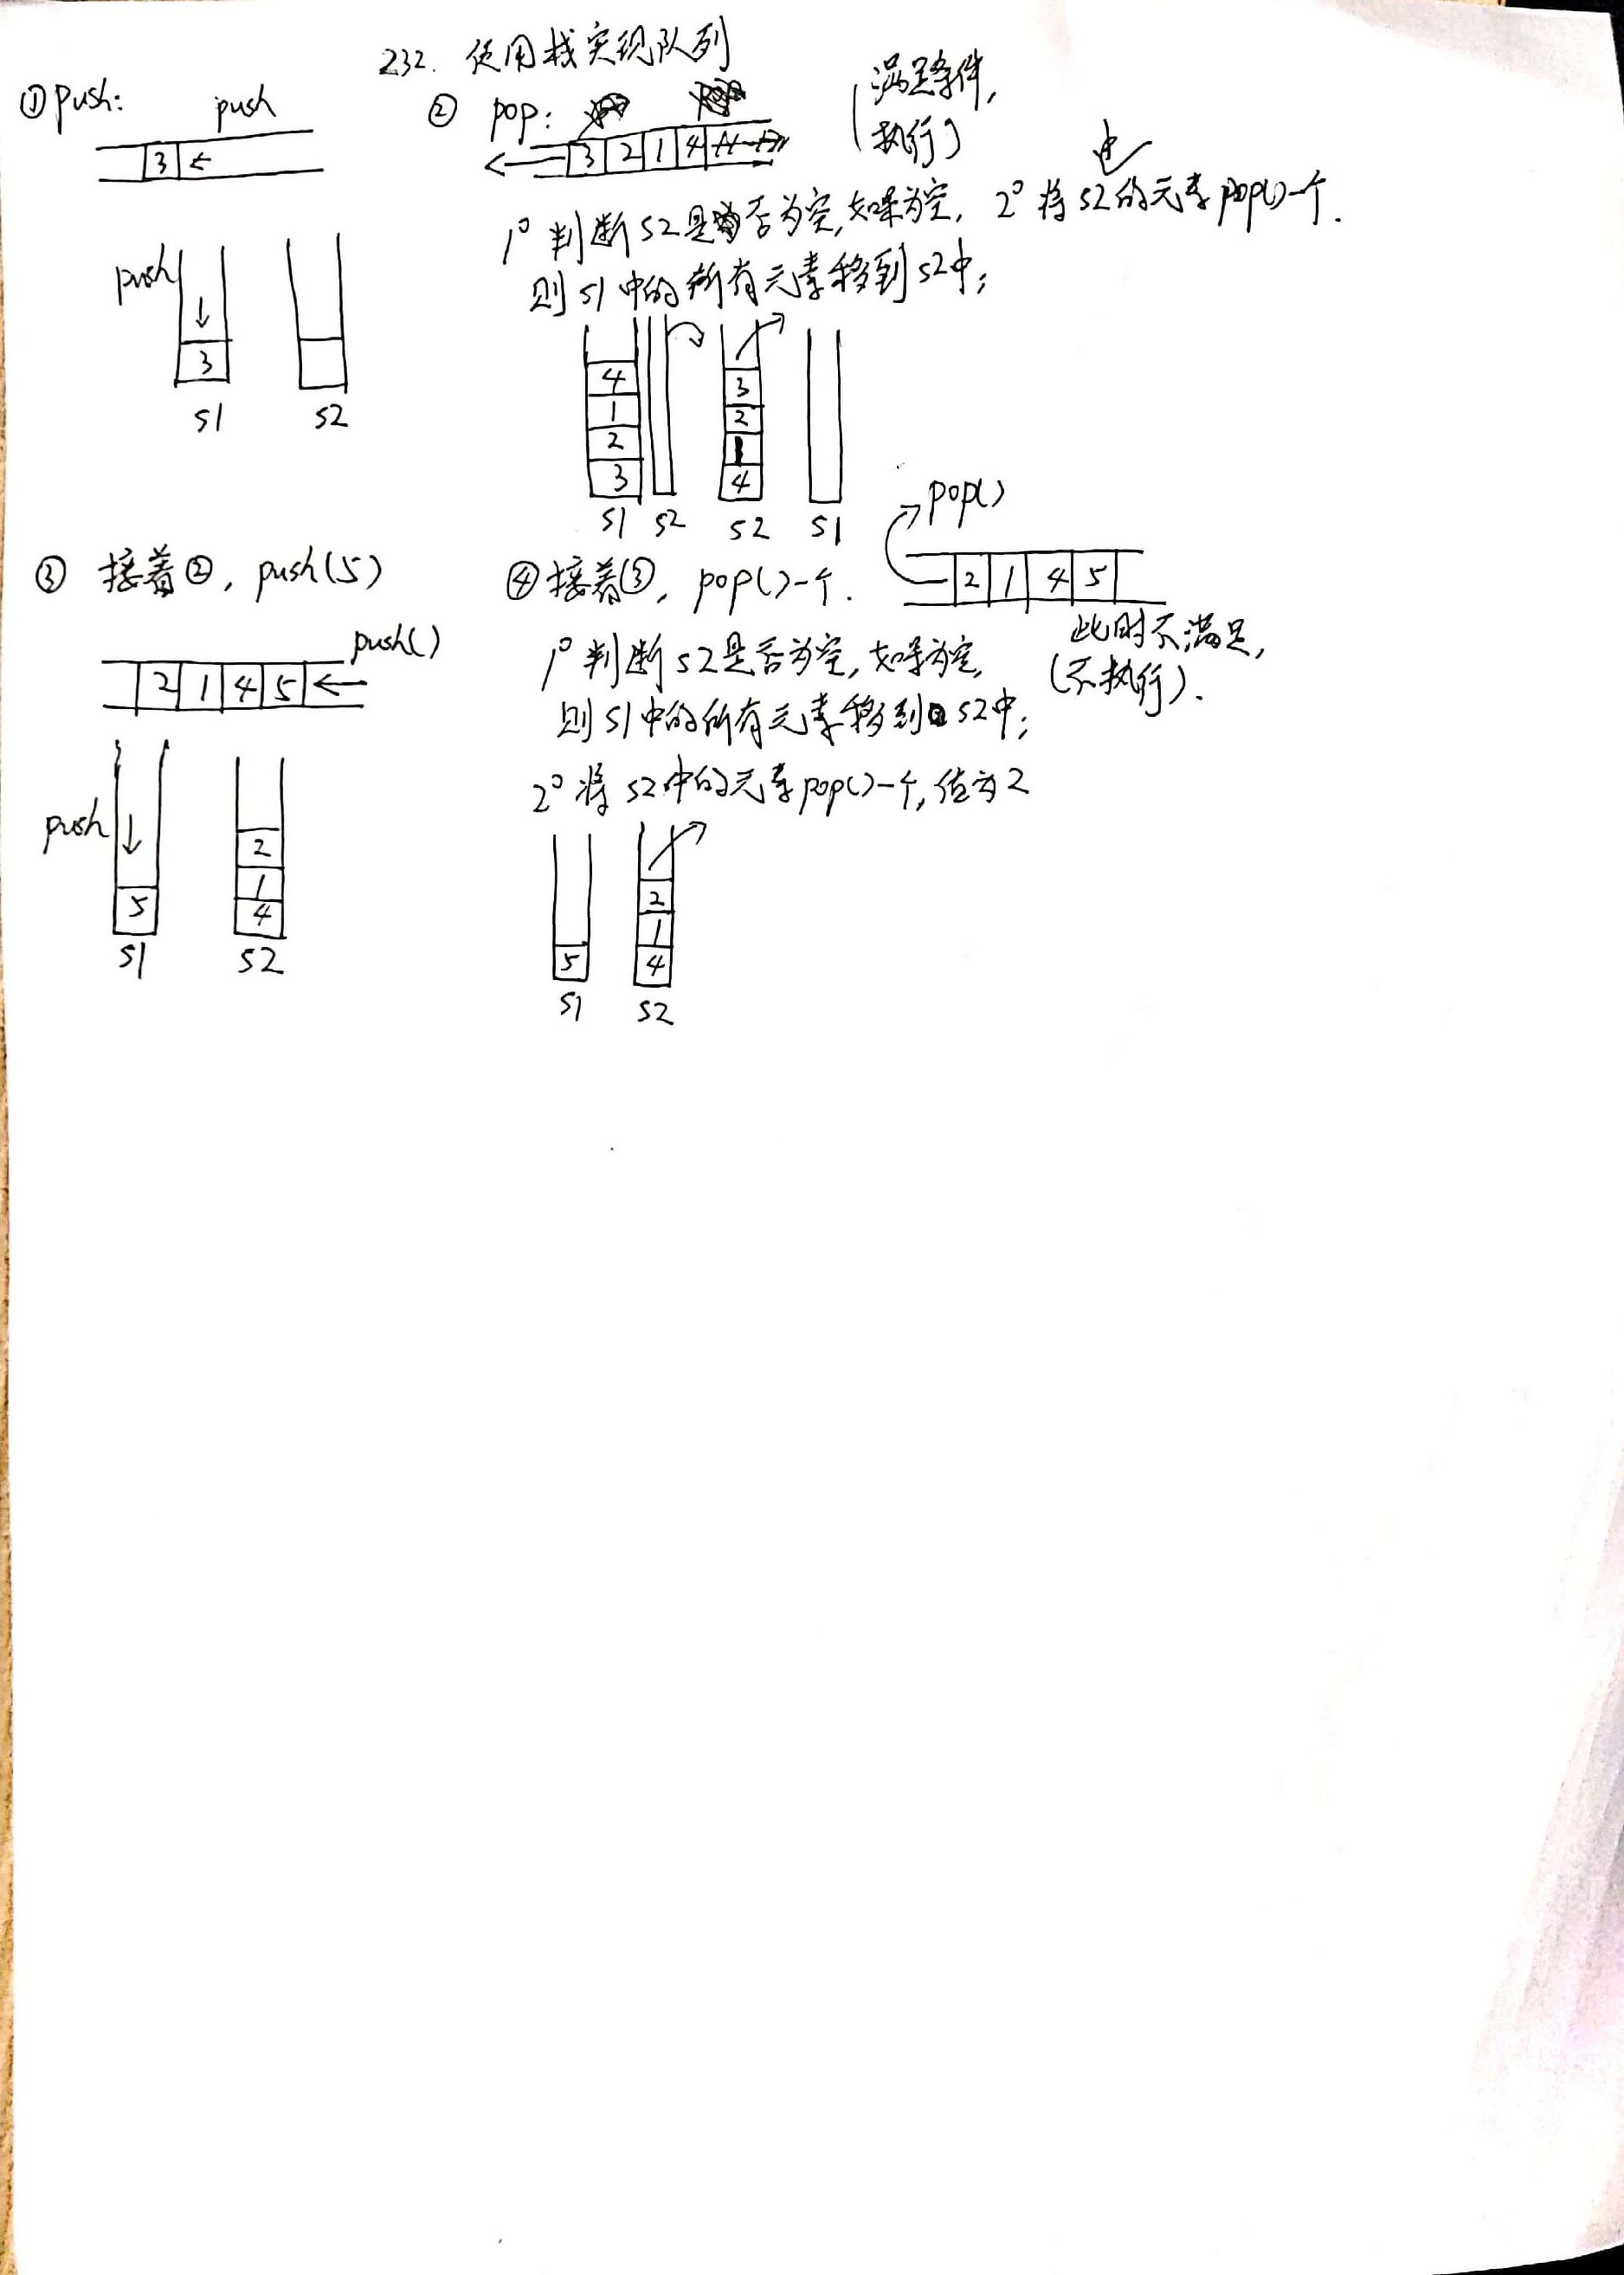 232. 使用栈实现队列
①push:
push
3
push
3
s1 s2
② pop:
3 2 1 4
(满足条件,
执行)
1° 判断s2是否为空,如果为空,
则s1中的所有元素移到s2中;
2° 将s2中的元素pop()一个.
4
1
2
3
s1 s2
3
2
1
4
s2 s1
③ 接着②, push(5)
push()
2 1 4 5
push
5
s1
2
1
4
s2
④接着③, pop()一个.
pop()
2 1 4 5
1° 判断s2是否为空,如果为空,
则s1中的所有元素移到s2中;
此时不满足,
(不执行).
2° 将s2中的元素pop()一个,值为2
5
s1
2
1
4
s2